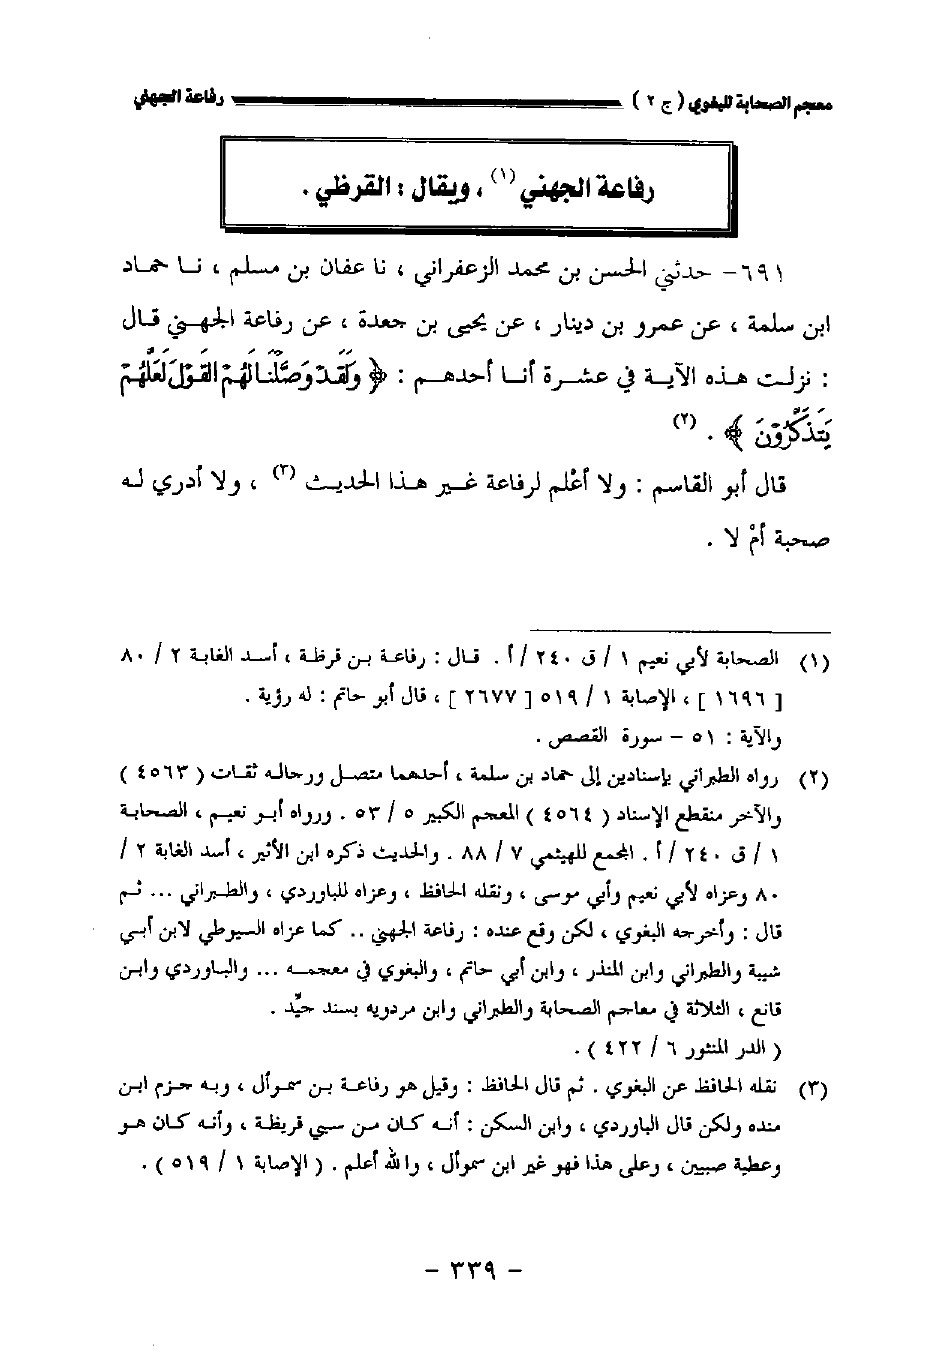 معجم الصحابة للبغوي ( ج ٢ ) رفاعة الجهني
رفاعة الجهني (١) ، ويقال : القرظي .
٦٩١- حدثني الحسن بن محمد الزعفراني ، نا عفان بن مسلم ، نـا حمـاد
ابن سلمة ، عن عمرو بن دينار ، عن يحيى بن جعدة ، عن رفاعة الجهـني قـال
: نزلـت هـذه الآيـة في عشـرة أنـا أحدهـم : ﴿ وَلَقَدْ وَصَّلْنَا لَهُمُ الْقَوْلَ لَعَلَّهُمْ
يَتَذَكَّرُونَ ﴾ . (٢)
قال أبو القاسم : ولا أعْلم لرفاعة غـير هـذا الحديـث (٣) ، ولا أدري لـه
صحبة أمْ لا .
(١) الصحابة لأبي نعيم ١ / ق ٢٤٠ / أ . قـال : رفاعـة بـن قرظـة ، أسـد الغابـة ٢ / ٨٠
[ ١٦٩٦ ] ، الإصابة ١ / ٥١٩ [ ٢٦٧٧ ] ، قال أبو حاتم : له رؤية .
والآية : ٥١ - سورة القصص .
(٢) رواه الطبراني بإسنادين إلى حماد بن سلمة ، أحدهما متصـل ورجالـه ثقـات ( ٤٥٦٣ )
والآخر منقطع الإسناد ( ٤٥٦٤ ) المعجم الكبير ٥ / ٥٣ . ورواه أبـو نعيـم ، الصحابـة
١ / ق ٢٤٠ / أ . المجمع للهيثمي ٧ / ٨٨ . والحديث ذكره ابن الأثير ، أسد الغابة ٢ /
٨٠ وعزاه لأبي نعيم وأبي موسى ، ونقله الحافظ ، وعزاه للباوردي ، والطـبراني ... ثـم
قال : وأخرجه البغوي ، لكن وقع عنده : رفاعة الجهني .. كما عزاه السيوطي لابن أبـي
شيبة والطبراني وابن المنذر ، وابن أبي حاتم ، والبغوي في معجمـه ... والبـاوردي وابـن
قانع ، الثلاثة في معاجم الصحابة والطبراني وابن مردويه بسند جيِّد .
( الدر المنثور ٦ / ٤٢٢ ) .
(٣) نقله الحافظ عن البغوي . ثم قال الحافظ : وقيل هو رفاعـة بـن سمـوأل ، وبـه جـزم ابـن
منده ولكن قال الباوردي ، وابن السكن : أنـه كـان مـن سـبي قريظـة ، وأنـه كـان هـو
وعطية صبيين ، وعلى هذا فهو غير ابن سموأل ، والله أعلم . ( الإصابة ١ / ٥١٩ ) .
- ٣٣٩ -